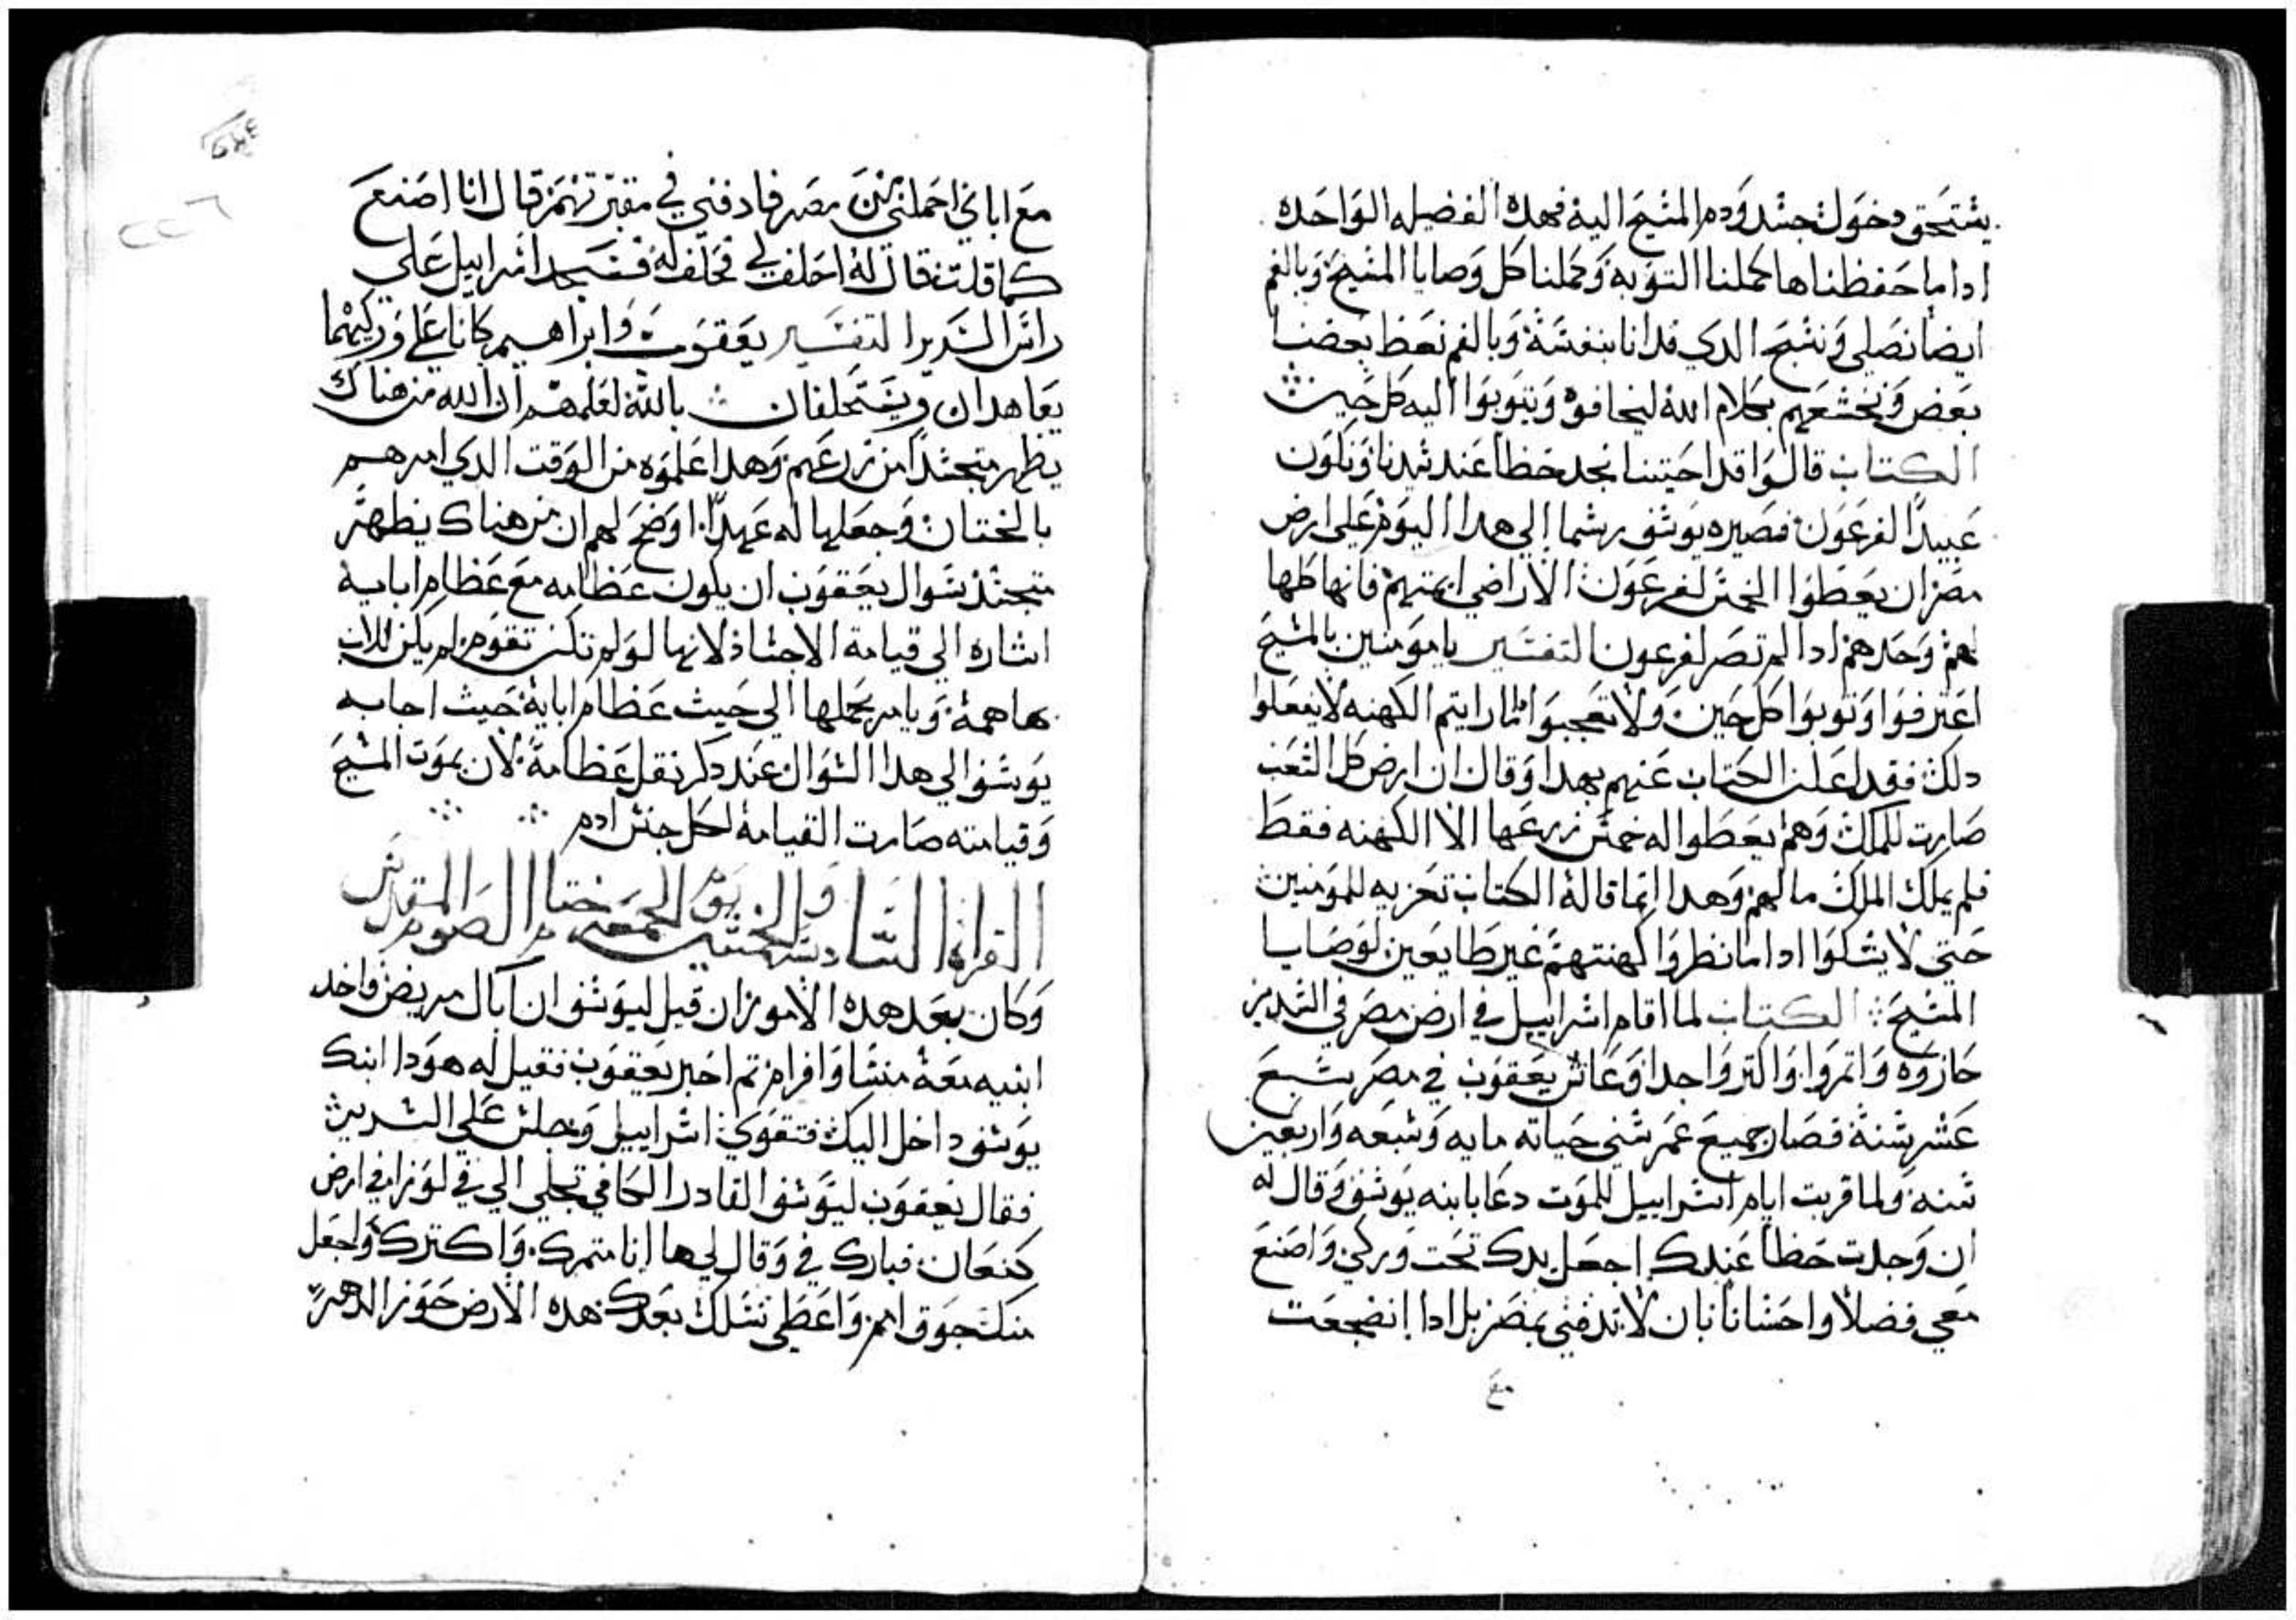 يستحق دخول جسد ودم المسيح اليه فهده الفضيله الواحده
ادا ما حفظناها كملنا التوبه وكملنا كل وصايا المسيح وبالفم
ايضا نصلي ونسبح الدي فدانا بنفسه وبالفم نعظ بعضنا
بعض ونخشعهم بكلام الله ليخافوه ويتوبوا اليه كل حين
الكتاب قالوا قد احييتنا نجد حظا عند سيدنا ونكون
عبيدا لفرعون فصيره يوسف رسما الي هدا اليوم علي ارض
مصر ان يعطوا الخمس لفرعون الا اراضي ايمتهم فانها كلها
لهم وحدهم ادا لم تصر لفرعون التفسير يا مومنين بالمسيح
اعترفوا وتوبوا كل حين ولا تعجبوا ادا رايتم الكهنه لا يفعلوا
دلك فقد اعلن الكتاب عنهم بهدا وقال ان ارض كل الشعب
صارت للملك وهم يعطوا له خمس زرعها الا الكهنه فقط
فلم يملك الملك مالهم وهدا انما قاله الكتاب تعزيه للمومنين
حتي لا يشكوا ادا ما نظروا كهنتهم غير طايعين لوصايا
المسيح الكتاب لما اقام اسراييل في ارض مصر في السدير
حازوه واتمروا واكتروا جدا وعاش يعقوب في مصر سبع
عشر سنه فصار جميع عمر سني حياته مايه وسبعه واربعين
سنه ولما قربت ايام اسراييل للموت دعا بابنه يوسف وقال له
ان وجدت حظا عندك اجعل يدك تحت وركي واصنع
معي فضلا واحسانا بان لا تدفني بمصر بل ادا انضجعت
مع
مع اباي احملني من مصر فادفني في مقبرتهم قال انا اصنع
كما قلت فقال له احلف لي فحلف له فسجد اسراييل علي
راس السرير التفسير يعقوب وابراهيم كانا علي وركيهما
يعاهدان ويستحلفان بالله لعلمهم ان الله من هناك
يظهر متجسدا من زرعهم وهدا علموه من الوقت الدي امرهم
بالختان وجعلها له عهدا اوضح لهم ان من هناك يظهر
متجسد سوال يعقوب ان يكون عظامه مع عظام ابايه
اشاره الي قيامة الاجساد لانها لو لم تكن تقوم لم يكن للاب
بها همة ويامر بحملها الي حيث عظام ابايه حيث اجابه
يوسف الي هدا السوال عند دكر نقل عظامه لان بموت المسيح
وقيامته صارت القيامه لكل جنس ادم
القراه السادسه والخمسين يوم الجمعه ختام الصوم المقدس
وكان بعد هده الامور ان قيل ليوسف ان اباك مريض فاخد
ابنيه معه منسا وافرام تم اخبر يعقوب فقيل له هودا ابنك
يوسف داخل اليك فتقوي اسراييل وجلس علي السرير
فقال يعقوب ليوسف القادر الكافي تجلي الي في لوزا في ارض
كنعان فبارك في وقال لي ها انا متمرك واكترك واجعل
منك جوق امم واعطي نسلك بعدك هده الارض حوز الدهر